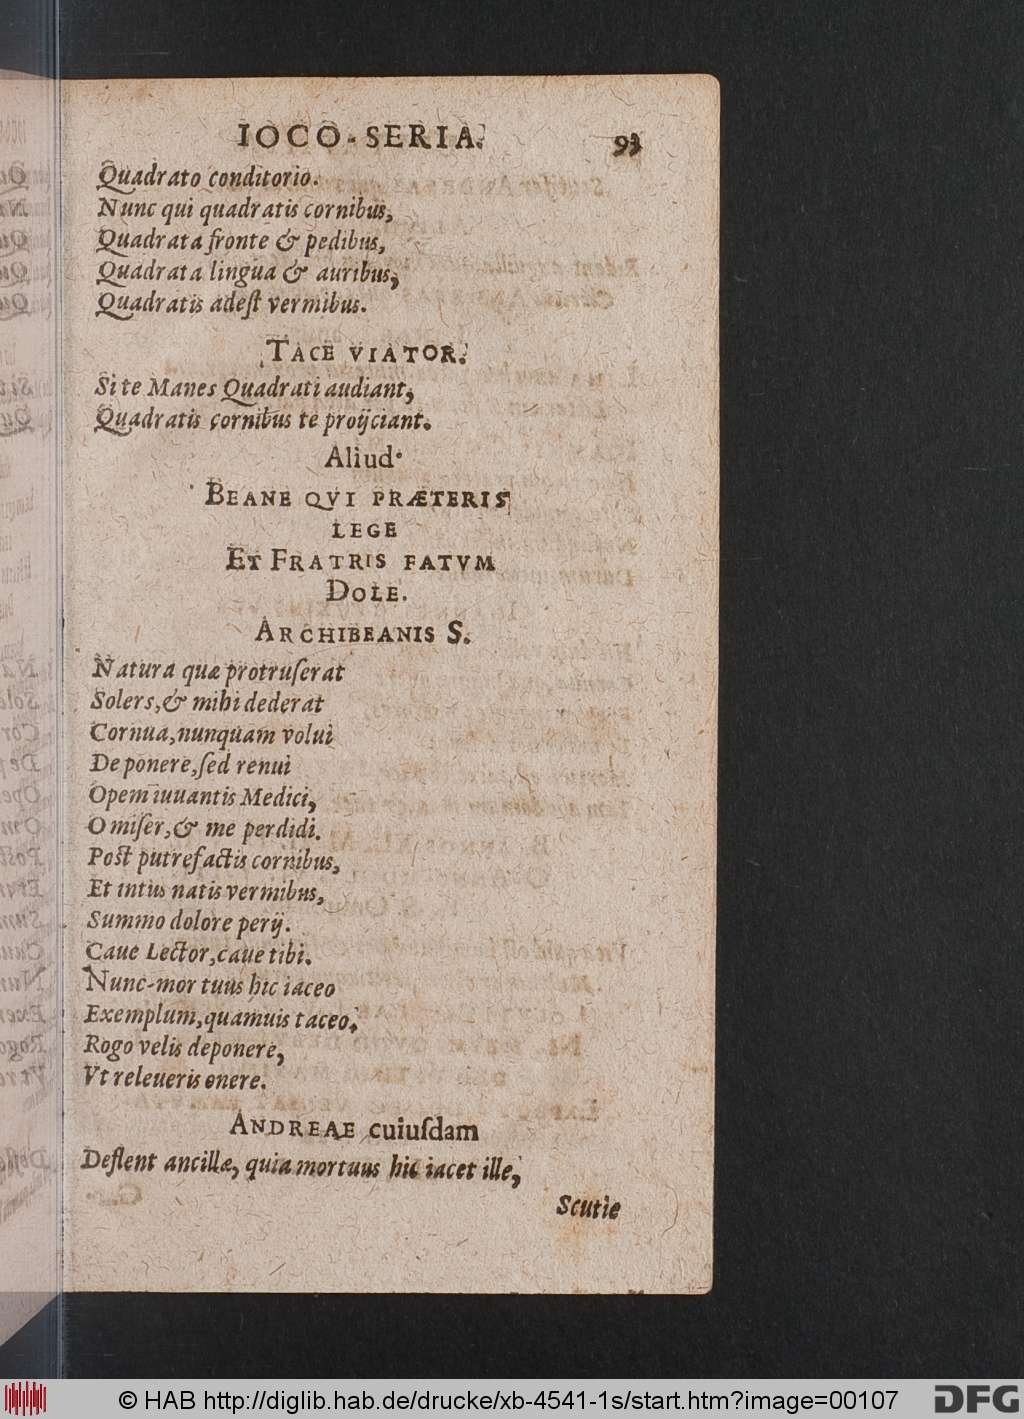 IOCO-SERIA.
93
Quadrato conditorio.
Nunc qui quadratis cornibus,
Quadrata fronte & pedibus,
Quadrata lingua & auribus,
Quadratis adeſt vermibus.
TACE VIATOR.
Si te Manes Quadrati audiant,
Quadratis cornibus te proijciant.
Aliud.
BEANE QVI PRÆTERIS
LEGE
ET FRATRIS FATVM
DOLE.
ARCHIBEANIS S.
Natura quæ protruſerat
Solers, & mihi dederat
Cornua, nunquam volui
Deponere, ſed renui
Opem iuuantis Medici,
O miſer, & me perdidi.
Post putrefactis cornibus,
Et intus natis vermibus,
Summo dolore perij.
Caue Lector, caue tibi.
Nunc-mortuus hic iaceo
Exemplum, quamuis taceo.
Rogo velis deponere,
Vt releueris onere.
ANDREAE cuiuſdam
Deflent ancillæ, quia mortuus hic iacet ille,
Scutie
© HAB http://diglib.hab.de/drucke/xb-4541-1s/start.htm?image=00107
DFG